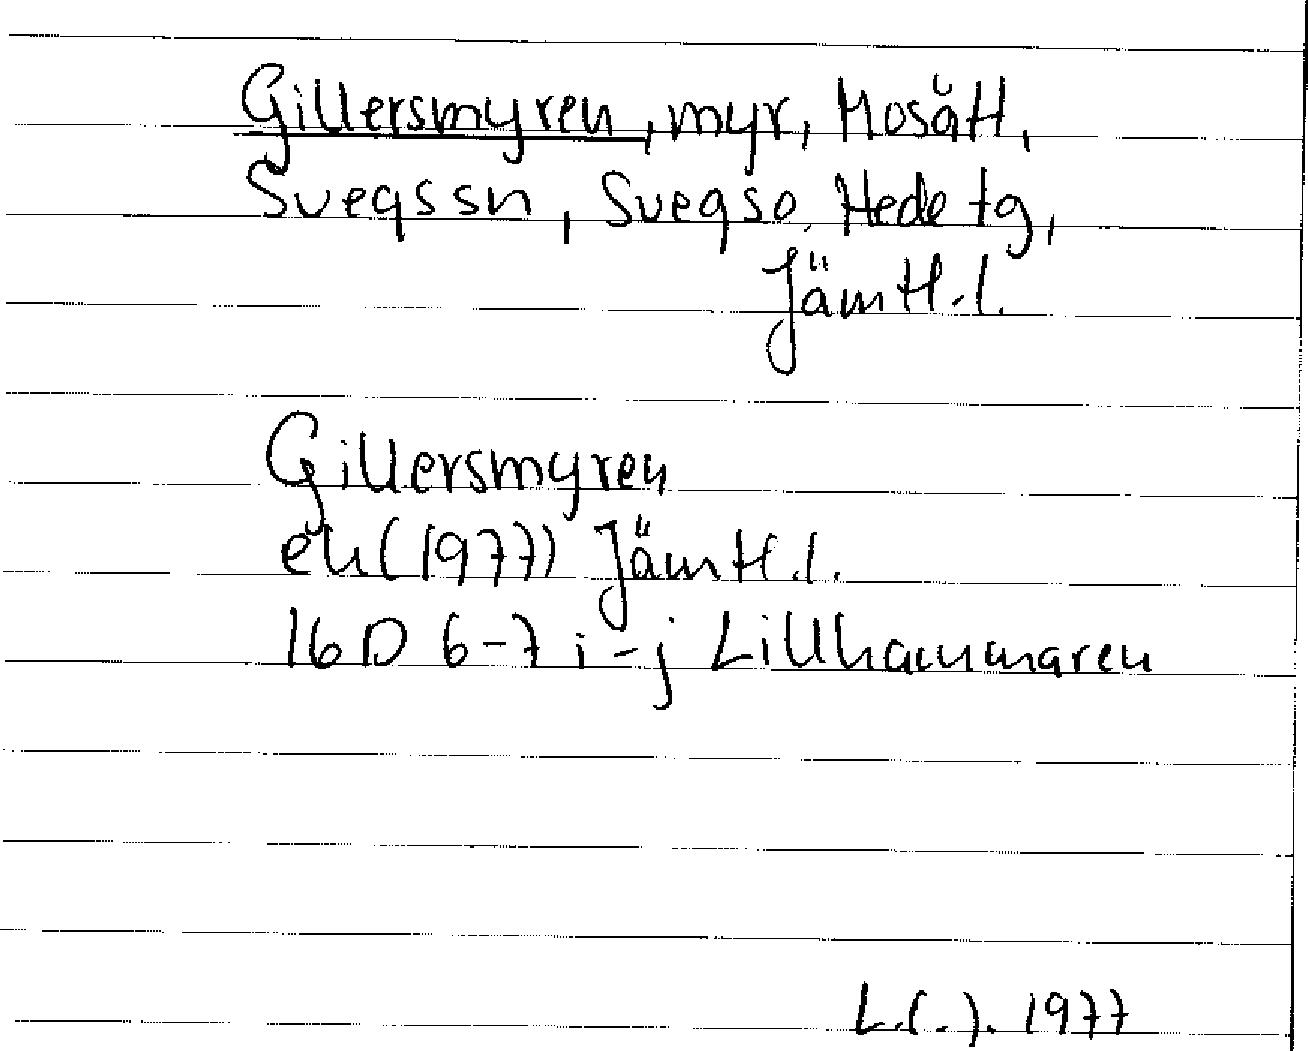 Gillersmyren, myr, Mosätt,
Svegs sn, Svegs o. Hede tg,
Jämtl. l.
Gillersmyren
ek (1977) Jämtl. l.
16D 6-7 i-j Lillhammaren
L.(.). 1977